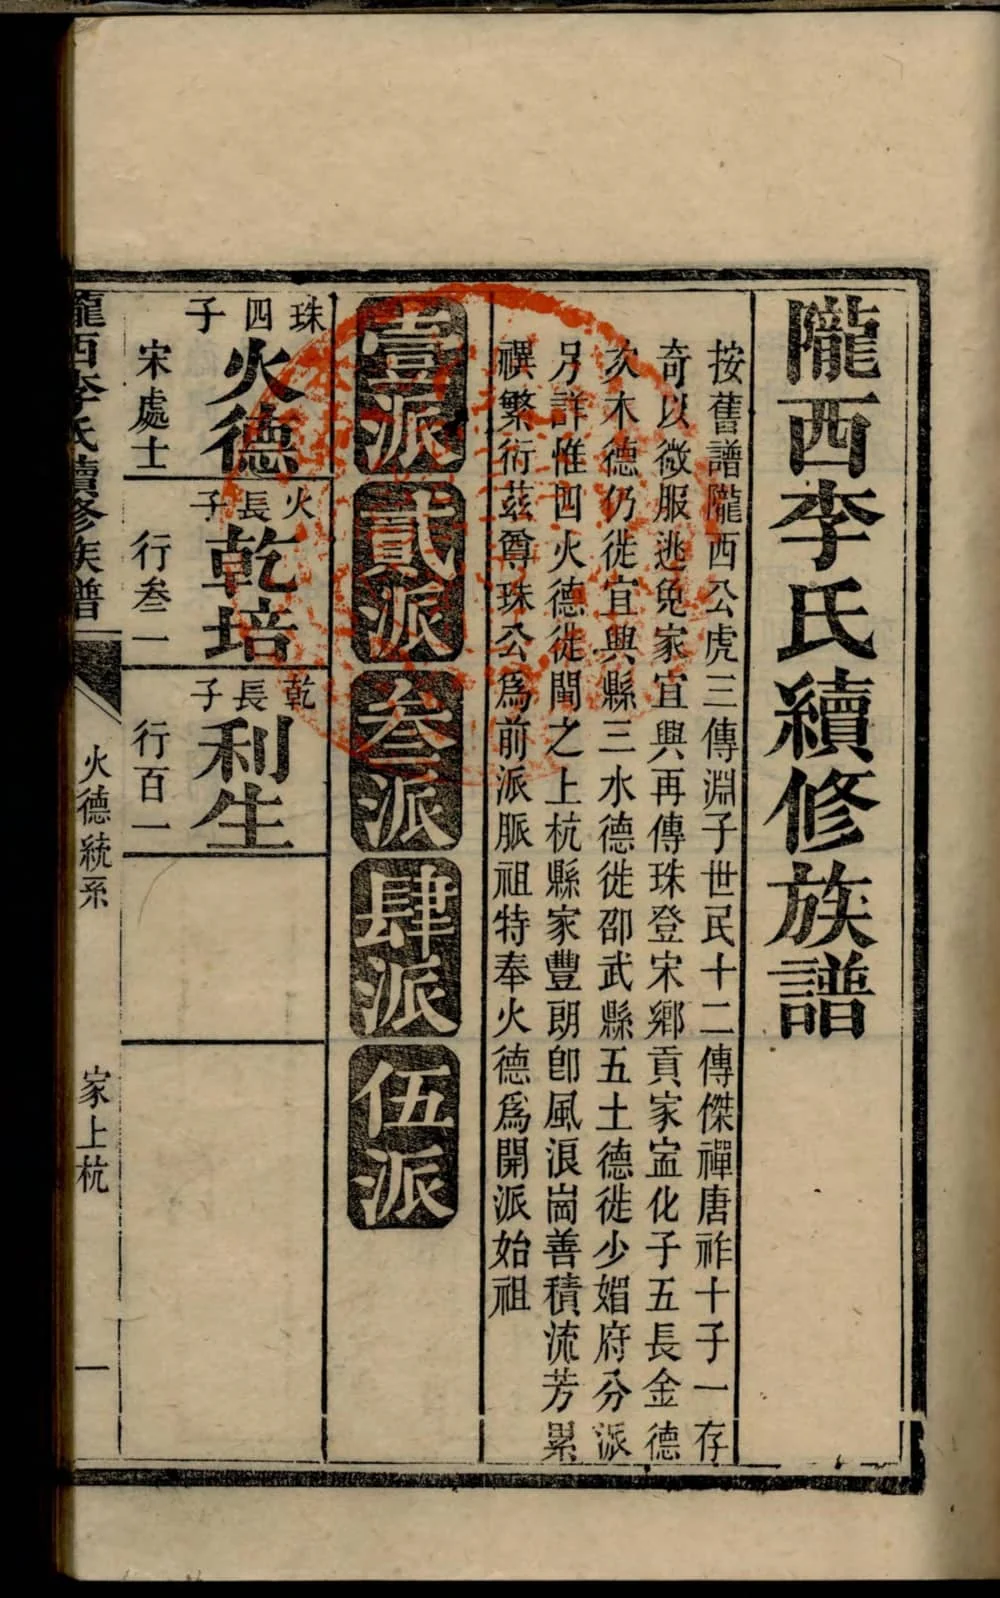 隴西李氏續修族譜
按舊譜隴西公虎三傳淵子世民十二傳傑禪唐祚十子一存
奇以微服逃免家宜興再傳珠登宋鄉貢家寍化子五長金德
次木德仍徙宜興縣三水德徙邵武縣五土德徙少媚府分派
另詳惟四火德徙閩之上杭縣家豐朗卽風浪崗善積流芳累
禩繁衍茲尊珠公為前派脈祖特奉火德為開派始祖
壹派
貳派
叁派
肆派
伍派
珠四子
火德
宋處士
火長子
乾培
行叁一
乾長子
利生
行百一
隴西李氏續修族譜
火德統系
家上杭
一